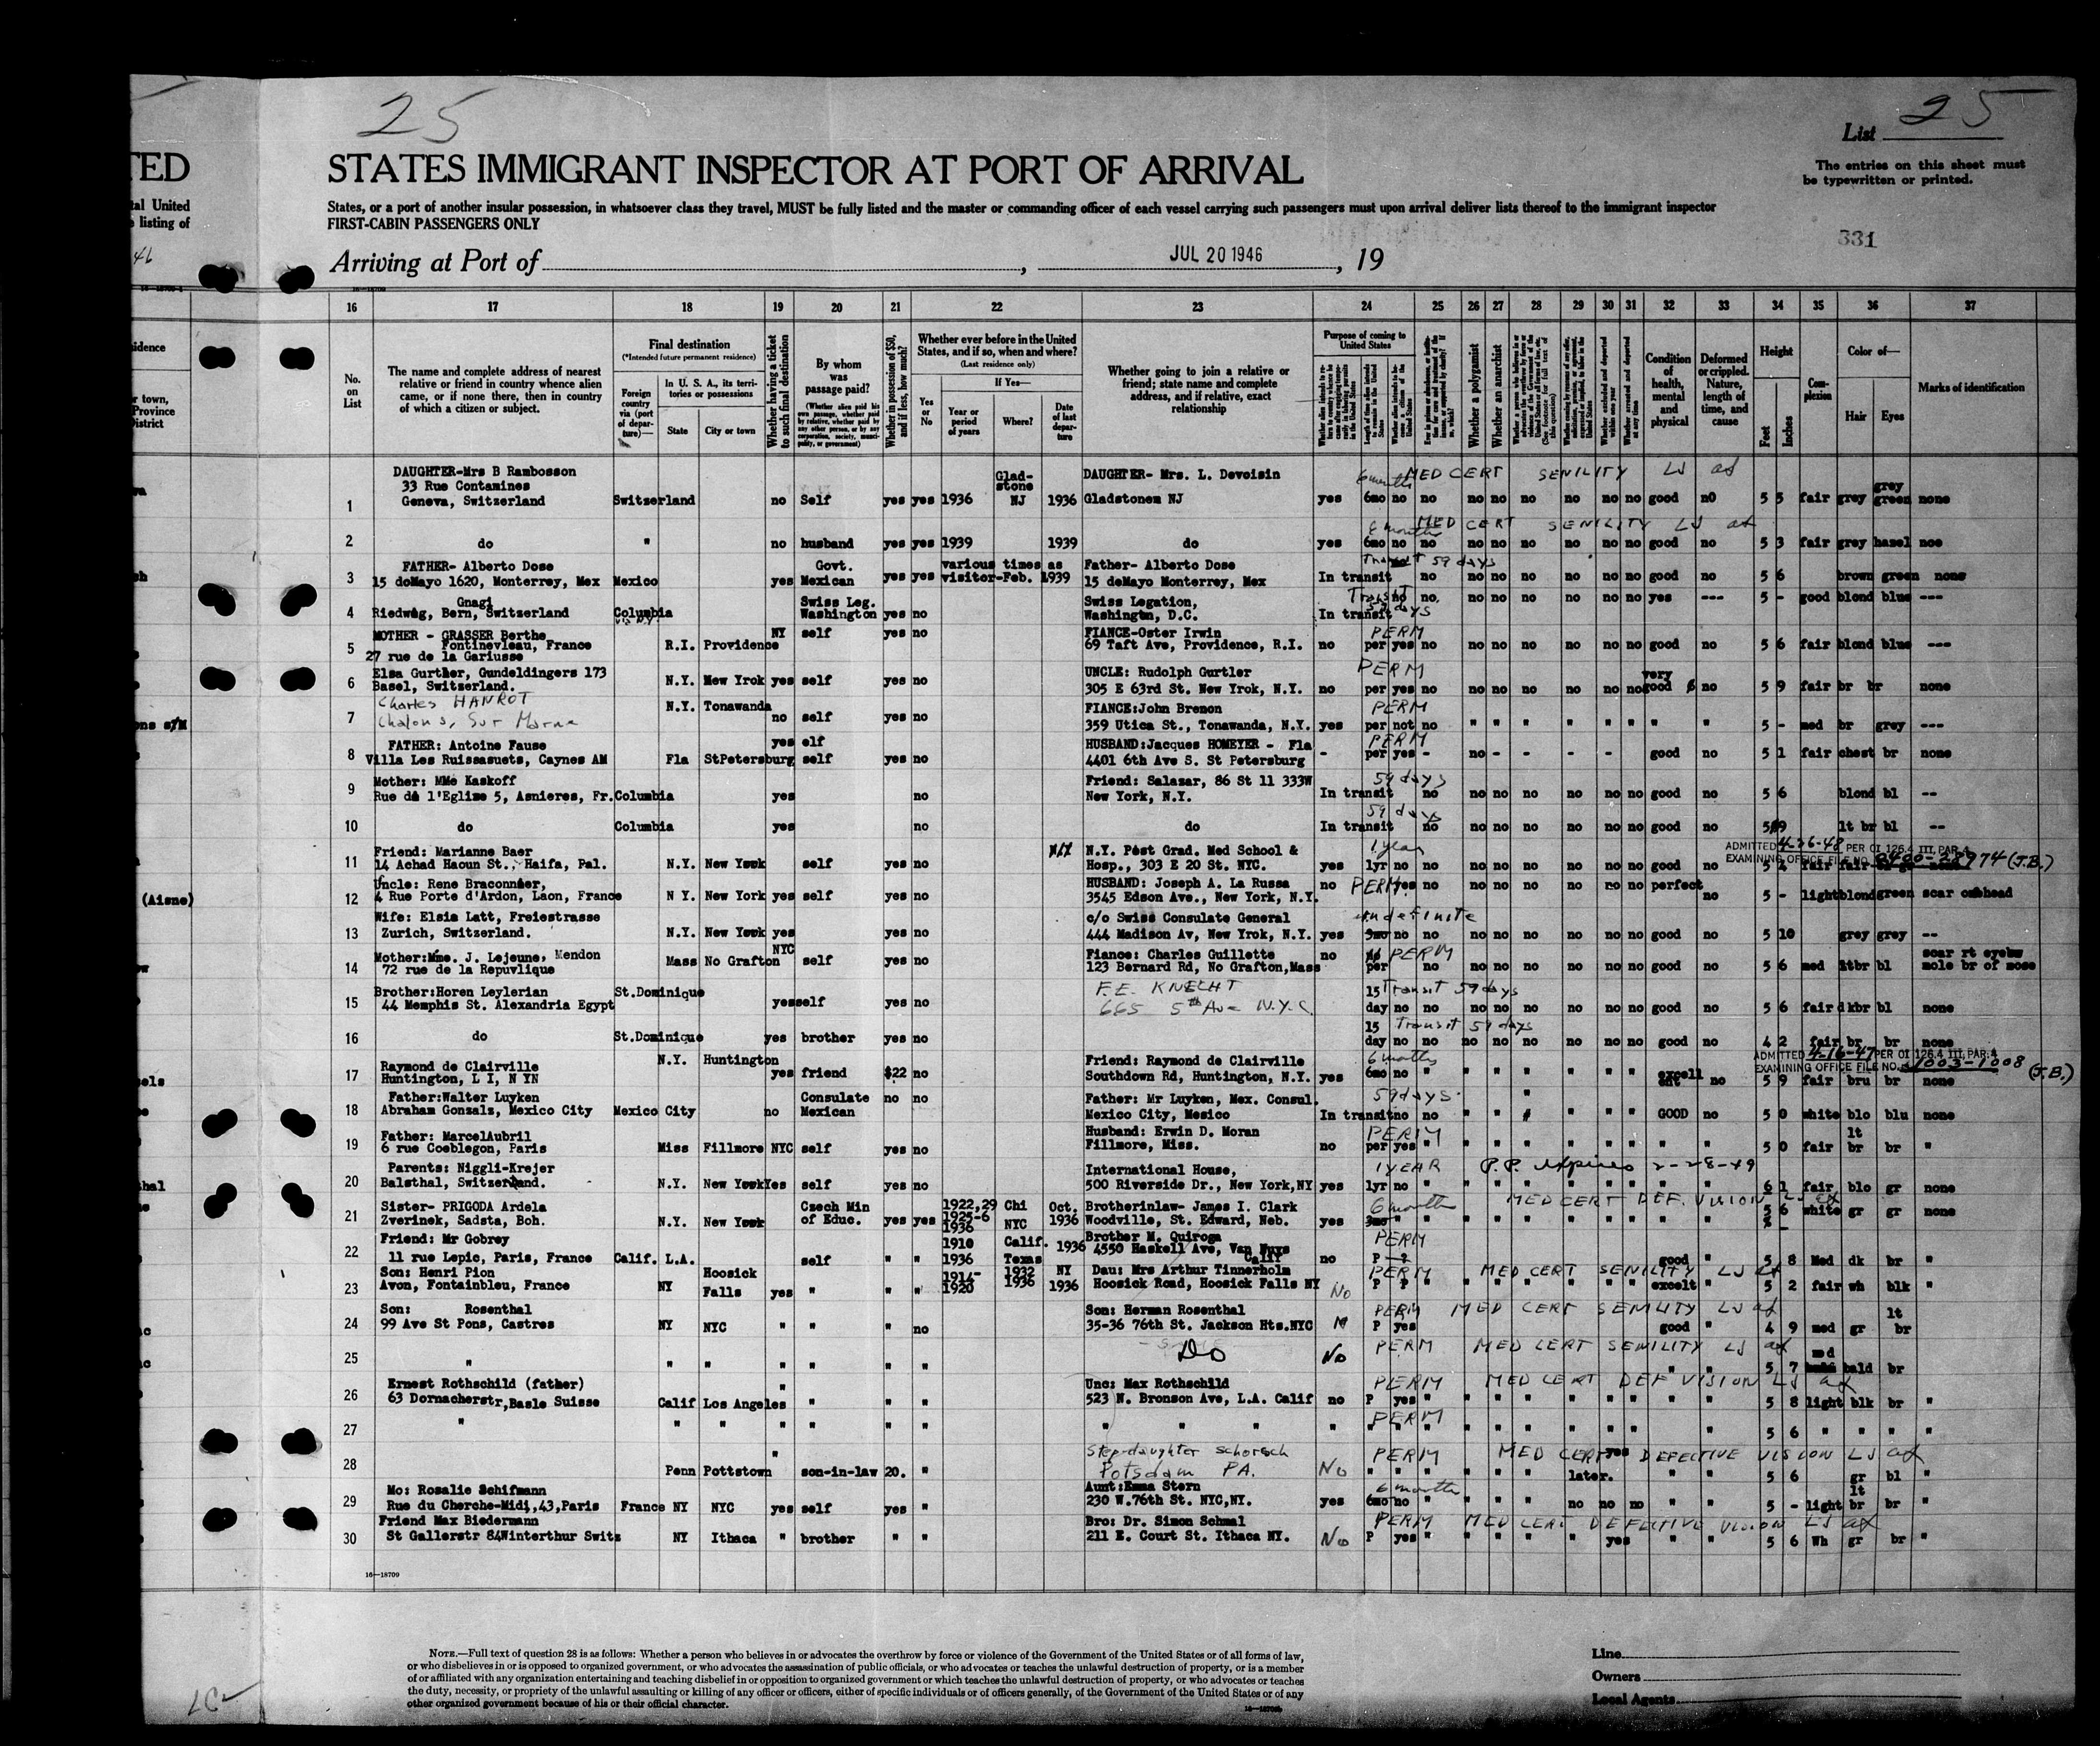 25
List 25
TED
STATES IMMIGRANT INSPECTOR AT PORT OF ARRIVAL
The entries on this sheet must
be typewritten or printed.
tal United
listing of
States, or a port of another insular possession, in whatsoever class they travel, MUST be fully listed and the master or commanding officer of each vessel carrying such passengers must upon arrival deliver lists thereof to the immigrant inspector
FIRST-CABIN PASSENGERS ONLY
331
46
Arriving at Port of , JUL 20 1946 , 19
16 17 18 19 20 21 22 23 24 25 26 27 28 29 30 31 32 33 34 35 36 37
No. on List
The name and complete address of nearest relative or friend in country whence alien came, or if none there, then in country of which a citizen or subject.
Final destination
(*Intended future permanent residence)
Foreign country via (port of departure)—
In U. S. A., its territories or possessions
State
City or town
Whether having a ticket to such final destination
By whom was passage paid?
(Whether alien paid his own passage, whether paid by relative, whether paid by any other person, or by any corporation, society, municipality, or government)
Whether in possession of $50, and if less, how much?
Whether ever before in the United States, and if so, when and where?
(Last residence only)
Yes or No
If Yes—
Year or period of years
Where?
Date of last departure
Whether going to join a relative or friend; state name and complete address, and if relative, exact relationship
Purpose of coming to United States
Whether a polygamist
Whether an anarchist
Condition of health, mental and physical
Deformed or crippled. Nature, length of time, and cause
Height
Feet
Inches
Complexion
Color of—
Hair
Eyes
Marks of identification
DAUGHTER-Mrs B Rambosson Glad- DAUGHTER- Mrs. L. Devoisin 6 months MED CERT SENILITY LJ
33 Rue Contamines stone grey
1 Geneva, Switzerland Switzerland no Self yes yes 1936 NJ 1936 Gladstonem NJ yes 6mo no no no no no no no no good nO 5 5 fair grey green none
6 months MED CERT SENILITY LJ
2 do " no husband yes yes 1939 1939 do yes 6mo no no no no no no no no good no 5 3 fair grey hazel noe
FATHER- Alberto Dose Govt. various times as Father- Alberto Dose Transit 59 days
3 15 deMayo 1620, Monterrey, Mex Mexico yes Mexican yes yes visitor-Feb. 1939 15 deMayo Monterrey, Mex In transit no no no no no no no good no 5 6 brown green none
Gnagi Swiss Leg. Swiss Legation, Transit no no. no no no no no no yes --- 5 - good blond blue ---
4 Riedwég, Bern, Switzerland Columbia Washington yes no Washington, D.C. In transit 59 days
MOTHER - GRASSER Berthe NY self yes no FIANCE-Oster Irwin PERM
5 Fontinevleau, France R.I. Providence 69 Taft Ave, Providence, R.I. no per yes no no no no no no no good no 5 6 fair blond blue ---
27 rue de la Gariusse
Elsa Gurther, Gundeldingers 173 UNCLE: Rudolph Gurtler PERM very
6 Basel, Switzerland. N.Y. New Yrok yes self yes no 305 E 63rd St. New Yrok, N.Y. no per yes no no no no no no no good no 5 9 fair br br none
Charles HANROT N.Y. Tonawanda FIANCE:John Brenon PERM
7 Chalons, Sur Marne no self yes no 359 Utica St., Tonawanda, N.Y. yes per not no " " " " " " " " 5 - med br grey ---
FATHER: Antoine Fause yes elf HUSBAND:Jacques HOMEYER - Fla PERM
8 Villa Les Ruissasuets, Caynes AM Fla StPetersburg self yes no 4401 6th Ave S. St Petersburg - per yes - no - - - - good no 5 1 fair chest br none
Mother: MMe Kaskoff Friend: Salazar, 86 St 11 333W 59 days
9 Rue dé l'Eglise 5, Asnieres, Fr. Columbia yes no New York, N.Y. In transit no no no no no no no good no 5 6 blond bl --
59 days
10 do Columbia yes no do In transit no no no no no no no good no 5 9 lt br bl --
Friend: Marianne Baer N.Y. Pôst Grad. Med School & 1 year ADMITTED 4-26-48 PER OI 126.4 III, PAR.4
11 14 Achad Haoun St., Haifa, Pal. N.Y. New York self yes no Hosp., 303 E 20 St. NYC. yes 1yr no no no no no no no no good no EXAMINING OFFICE FILE NO. 0400-28974 (J.B.)
Uncle: Rene Braconnier, HUSBAND: Joseph A. La Russa no PERM yes no no no no no no no perfect
12 4 Rue Porte d'Ardon, Laon, France N Y. New York yes self yes no 3545 Edson Ave., New York, N.Y. no 5 - light blond green scar
Wife: Elsia Latt, Freiestrasse c/o Swiss Consulate General indefinite
13 Zurich, Switzerland. N.Y. New York yes yes no 444 Madison Av, New Yrok, N.Y. yes 3mo no no no no no no no no good no 5 10 grey grey --
Mother:Mme. J. Lejeune, Mendon NYC Fiance: Charles Guillette no PERM scar rt
14 72 rue de la Repuvlique Mass No Grafton self yes no 123 Bernard Rd, No Grafton,Mass per no no no no no no no good no 5 6 med ltbr bl mole br of nose
Brother:Horen Leylerian St.Dominique F.E. KNECHT 15 Transit 59 days
15 44 Memphis St. Alexandria Egypt yes self yes no 665 5th Ave N.Y.C. day no no no no no no no no good no 5 6 fair dkbr bl none
15 Transit 59 days
16 do St.Dominique yes brother yes no day no no no no no no no no good no 4 2 fair br br none
N.Y. Huntington 6 months ADMITTED 4-16-47 PER OI 126.4 III, PAR.4
Raymond de Clairville Friend: Raymond de Clairville EXAMINING OFFICE FILE NO. 1003-1008 (J.B.)
17 Huntington, L I, N YN yes friend $22 no Southdown Rd, Huntington, N.Y. yes 6mo no " " " " " " " excell ent no 5 9 fair bru br none
Father:Walter Luyken Consulate no no Father: Mr Luyken, Mex. Consul. 59 days
18 Abraham Gonzals, Mexico City Mexico City no Mexican Mexico City, Mesico In transit no no " " " " " GOOD no 5 0 white blo blu none
Father: MarcelAubril Husband: Erwin D. Moran PERM lt
19 6 rue Coeblegon, Paris Miss Fillmore NYC self yes no Fillmore, Miss. no per yes " " " " " " " " " 5 0 fair br br "
Parents: Niggli-Krejer International House, 1 YEAR P.P. expires 2-28-49
20 Balsthal, Switzerland. N.Y. New York Yes self yes no 500 Riverside Dr., New York,NY yes 1yr no " " " " " " " " " 6 1 fair blo gr none
Sister- PRIGODA Ardela Czech Min 1922,29 Chi Oct. Brotherinlaw- James I. Clark 6 month MED CERT DEF. VISION LJ
21 Zverinek, Sadsta, Boh. N.Y. New York of Educ. yes yes 1925-6 1936 NYC 1936 Woodville, St. Edward, Neb. yes 3mo " " " " " " " " " " 5 6 white gr gr none
Friend: Mr Gobrey 1910 Calif. 1936 Brother M. Quiroga PERM
22 11 rue Lepic, Paris, France Calif. L.A. self " " 1936 Texas 4550 Haskell Ave, Van Nuys Calif no P good " 5 8 Med dk br "
Son: Henri Pion Hoosick 1914- 1932 NY Dau: Mrs Arthur Tinnerholm PERM MED CERT SENILITY LJ
23 Avon, Fontainbleu, France NY Falls yes " " " 1920 1936 1936 Hoosick Road, Hoosick Falls NY No P P " " " " " " " " excelt " 5 2 fair wh blk "
Son: Rosenthal Son: Herman Rosenthal PERM MED CERT SENILITY LJ lt
24 99 Ave St Pons, Castres NY NYC " " " no 35-36 76th St. Jackson Hts.NYC P yes good " 4 9 med gr br
25 " " " " " " " Do No PERM MED CERT SENILITY LJ " " 5 7 med bald br
Ernest Rothschild (father) " Unc: Max Rothschild PERM MED CERT DEF VISION LJ
26 63 Dornacherstr,Basle Suisse Calif Los Angeles " " " 523 N. Bronson Ave, L.A. Calif no P yes " " " " " " " " " 5 8 light blk br "
27 " " " " " " " " " " " PERM " " " " " " " " " 5 6 " " " "
" Step-daughter Schorsch PERM MED CERT yes DEFECTIVE VISION LJ
28 Penn Pottstown son-in-law 20. " Potsdam PA. No " " " " " " later. " " 5 6 gr bl "
Mo: Rosalie Schifmann Aunt:Emma Stern 6 months lt
29 Rue du Cherche-Midi,43,Paris France NY NYC yes self yes " 230 W.76th St. NYC,NY. yes 6mo no " " " " no no no " " 5 - light br br "
Friend Max Biedermann Bro: Dr. Simon Schmal PERM MED CERT DEFECTIVE VISION LJ
30 St Gallerstr 84Winterthur Switz NY Ithaca " brother " " 211 E. Court St. Ithaca NY. No P yes " " " " " yes " " 5 6 Wh gr br "
(Aisne)
16—18709
NOTE.—Full text of question 28 is as follows: Whether a person who believes in or advocates the overthrow by force or violence of the Government of the United States or of all forms of law,
or who disbelieves in or is opposed to organized government, or who advocates the assassination of public officials, or who advocates or teaches the unlawful destruction of property, or is a member
of or affiliated with any organization entertaining and teaching disbelief in or opposition to organized government or which teaches the unlawful destruction of property, or who advocates or teaches
the duty, necessity, or propriety of the unlawful assaulting or killing of any officer or officers, either of specific individuals or of officers generally, of the Government of the United States or of any
other organized government because of his or their official character.
Line
Owners
Local Agents